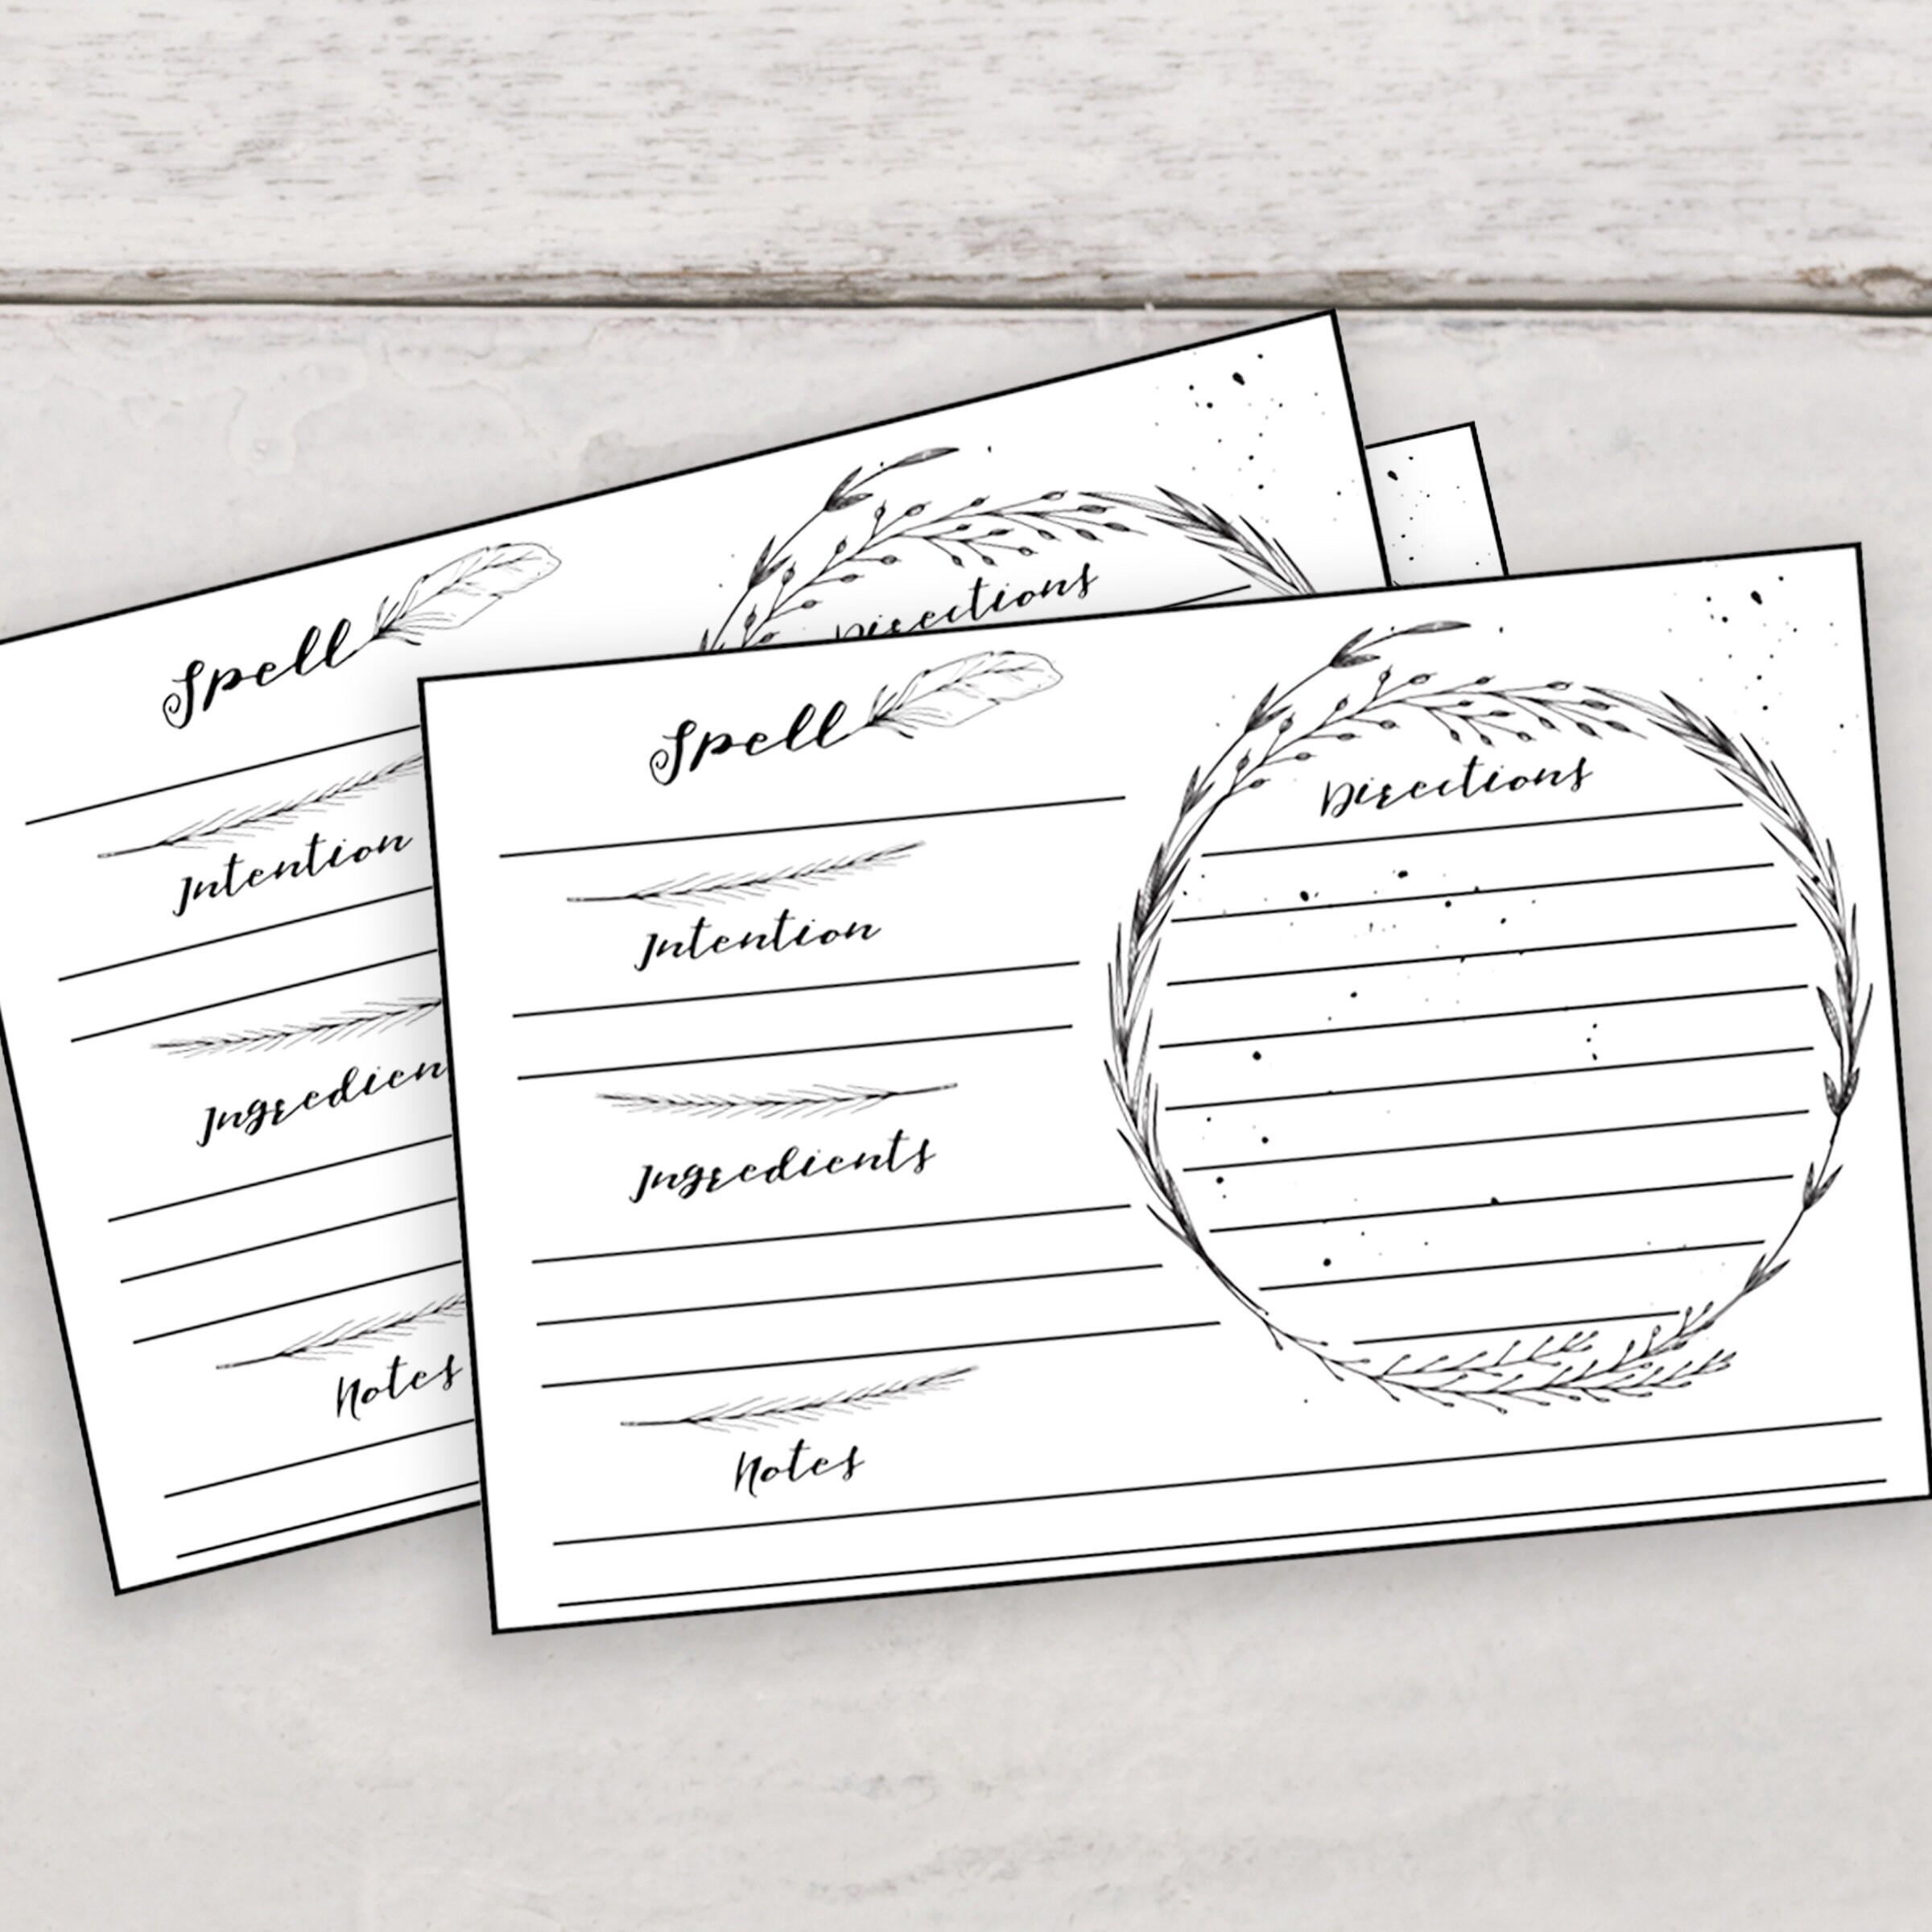 Spell
Intention
Ingredien
Notes
Directions
Spell
Intention
Ingredients
Notes
Directions